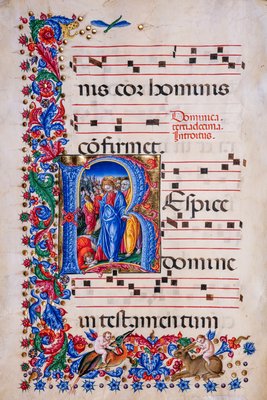 nis cor hominis
cōfirmet
Dominica.
tertiadecima.
Introitus.
REspice
domine
in testamentum